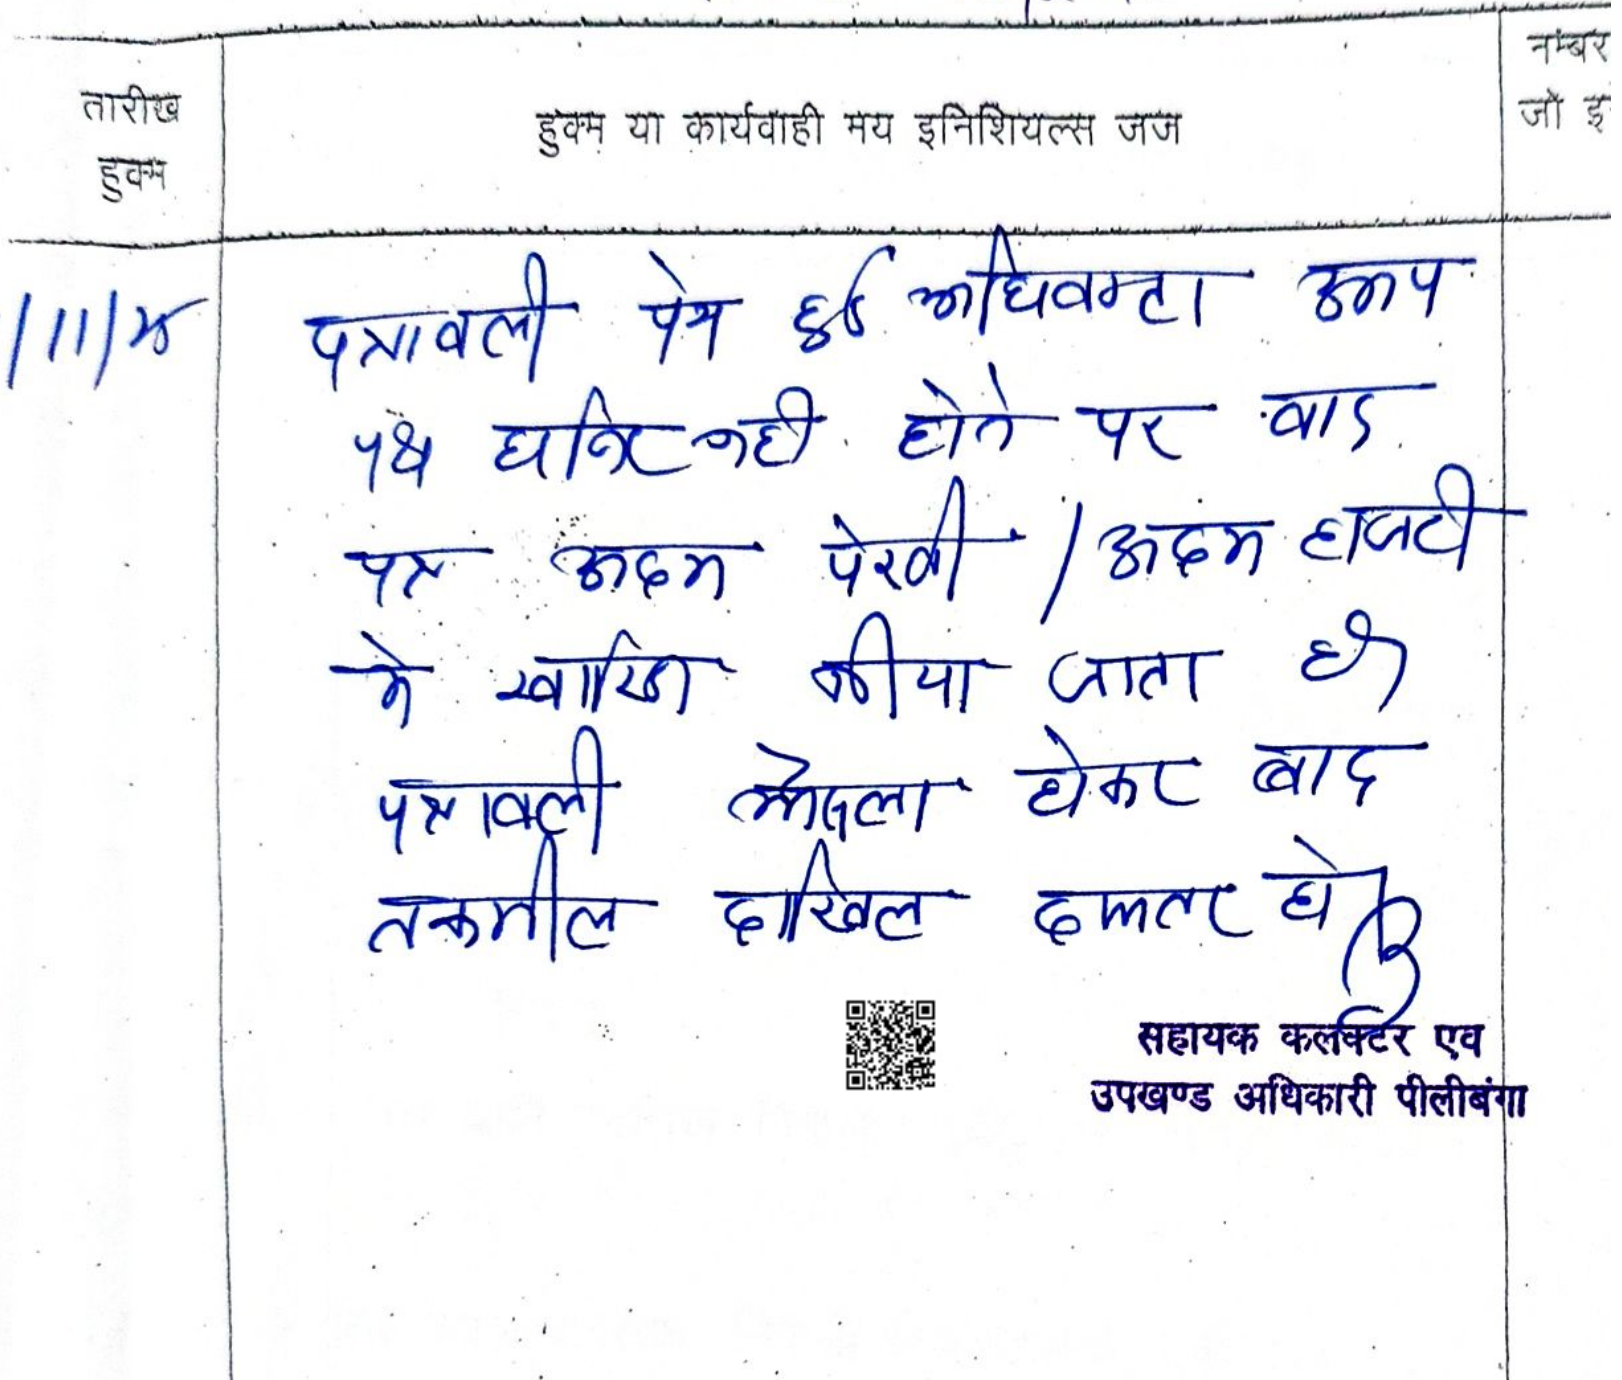 नम्बर
तारीख
जो
हुक्म या कार्यवाही मय इनिशियल्स जज
हुक्म
पत्रावली पेश हुई अधिवक्ता उभय
पक्ष हाजिर नही होने पर वाद
पत्र अदम पेरवी / अदम हाजरी
मे खारिज कीया जाता है।
पत्रावली फैसला होकर बाद
तकमील दाखिल दफ्तर हो
सहायक कलक्टर एव
उपखण्ड अधिकारी पीलीबंगा